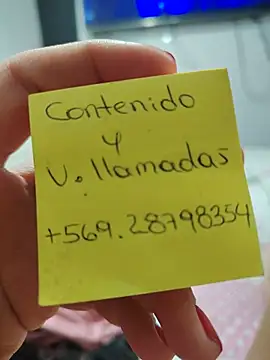 Contenido
y
V. llamadas
+569.28798354